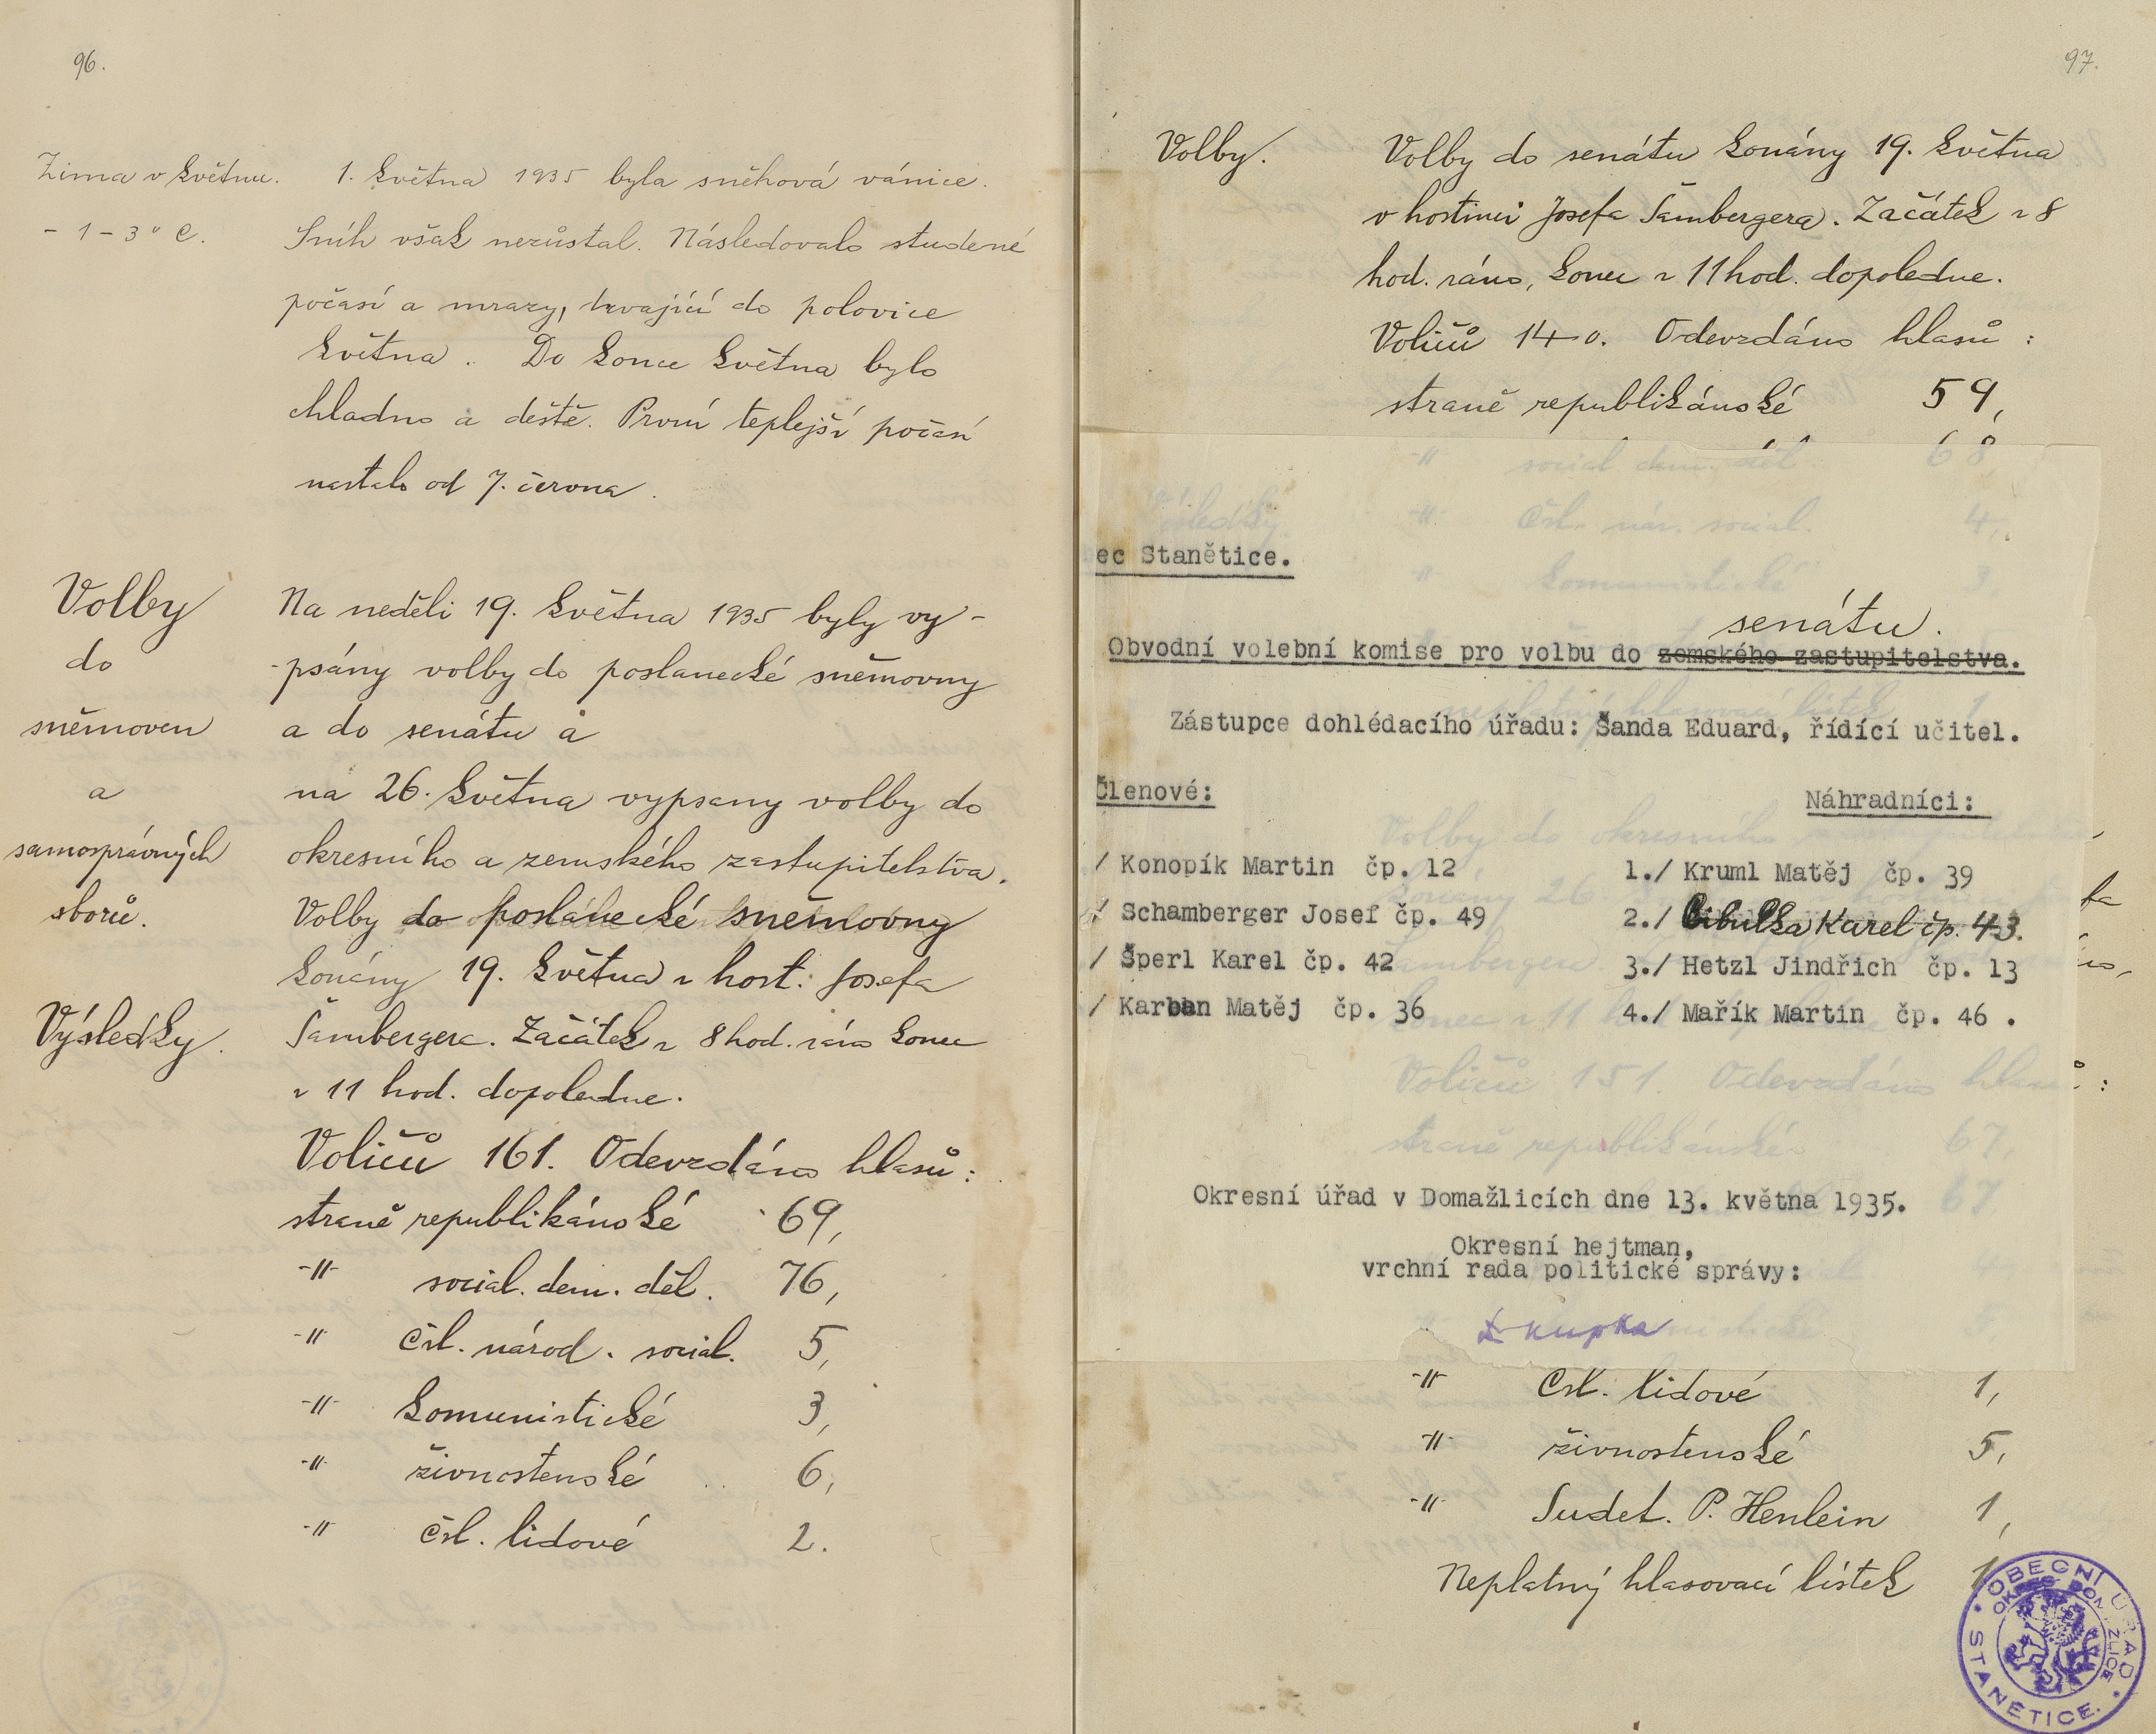 96.
Zima v květnu.
- 1 - 3° C.
1. května 1935 byla sněhová vánice.
Sníh však nezůstal. Následovalo studené
počasí a mrazy, trvající do polovice
května. Do konce května bylo
chladno a deště. První teplejší počasí
nastalo od 7. června.
Volby
do
sněmoven
a
samosprávných
sborů.
Výsledky.
Na neděli 19. května 1935 byly vy-
-psány volby do poslanecké sněmovny
a do senátu a
na 26. května vypsany volby do
okresního a zemského zastupitelstva.
Volby do poslanecké sněmovny
konány 19. května v host. Josefa
Šambergera. Začátek v 8 hod. ráno konec
v 11 hod. dopoledne.
Voličů 161. Odevzdáno hlasů:
straně republikánské 69,
-"- social. dem. děl. 76,
-"- čsl. národ. social. 5,
-"- komunistické 3,
-"- živnostenské 6,
-"- čsl. lidové 2.
97.
Volby.
Volby do senátu konány 19. května
v hostinci Josefa Šambergera. Začátek v 8
hod. ráno, konec v 11 hod. dopoledne.
Voličů 140. Odevzdáno hlasů:
straně republikánské 59,
-"- social. dem. děl. 68
Výsledky
-"- čsl. nár. social. 4,
-"- komunistické 3
ec Stanětice.
senátu.
Obvodní volební komise pro volbu do zemského zastupitelstva.
neplatný hlasovací lístek 1
Zástupce dohlédacího úřadu: Šanda Eduard, řídící učitel.
Členové:
Náhradníci:
Volby do okresního
/ Konopík Martin čp. 12
/ Schamberger Josef čp. 49
/ Šperl Karel čp. 42
/ Karban Matěj čp. 36
1./ Kruml Matěj čp. 39
2./ Cibulka Karel čp. 43.
3./ Hetzl Jindřich čp. 13
4./ Mařík Martin čp. 46 .
konány 26
Šambergera
konec v 11
Voličů 151. Odevzdáno hlasů:
straně republikánské 67,
67,
Okresní úřad v Domažlicích dne 13. května 1935.
Okresní hejtman,
vrchní rada politické správy:
Kupka
-"- Čsl. lidové 1,
-"- živnostenské 5,
-"- Sudet. P. Henlein 1,
Neplatný hlasovací lístek 1
OBECNÍ ÚŘAD STANĚTICE.
OKRES DOMAŽLICE